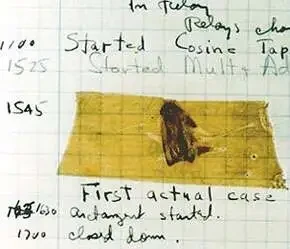 In Relay
Relays cha
1100 Started Cosine Tap
1525 Started Mult + Ad
1545
First actual case
1630 antangent started.
1700 closed down.